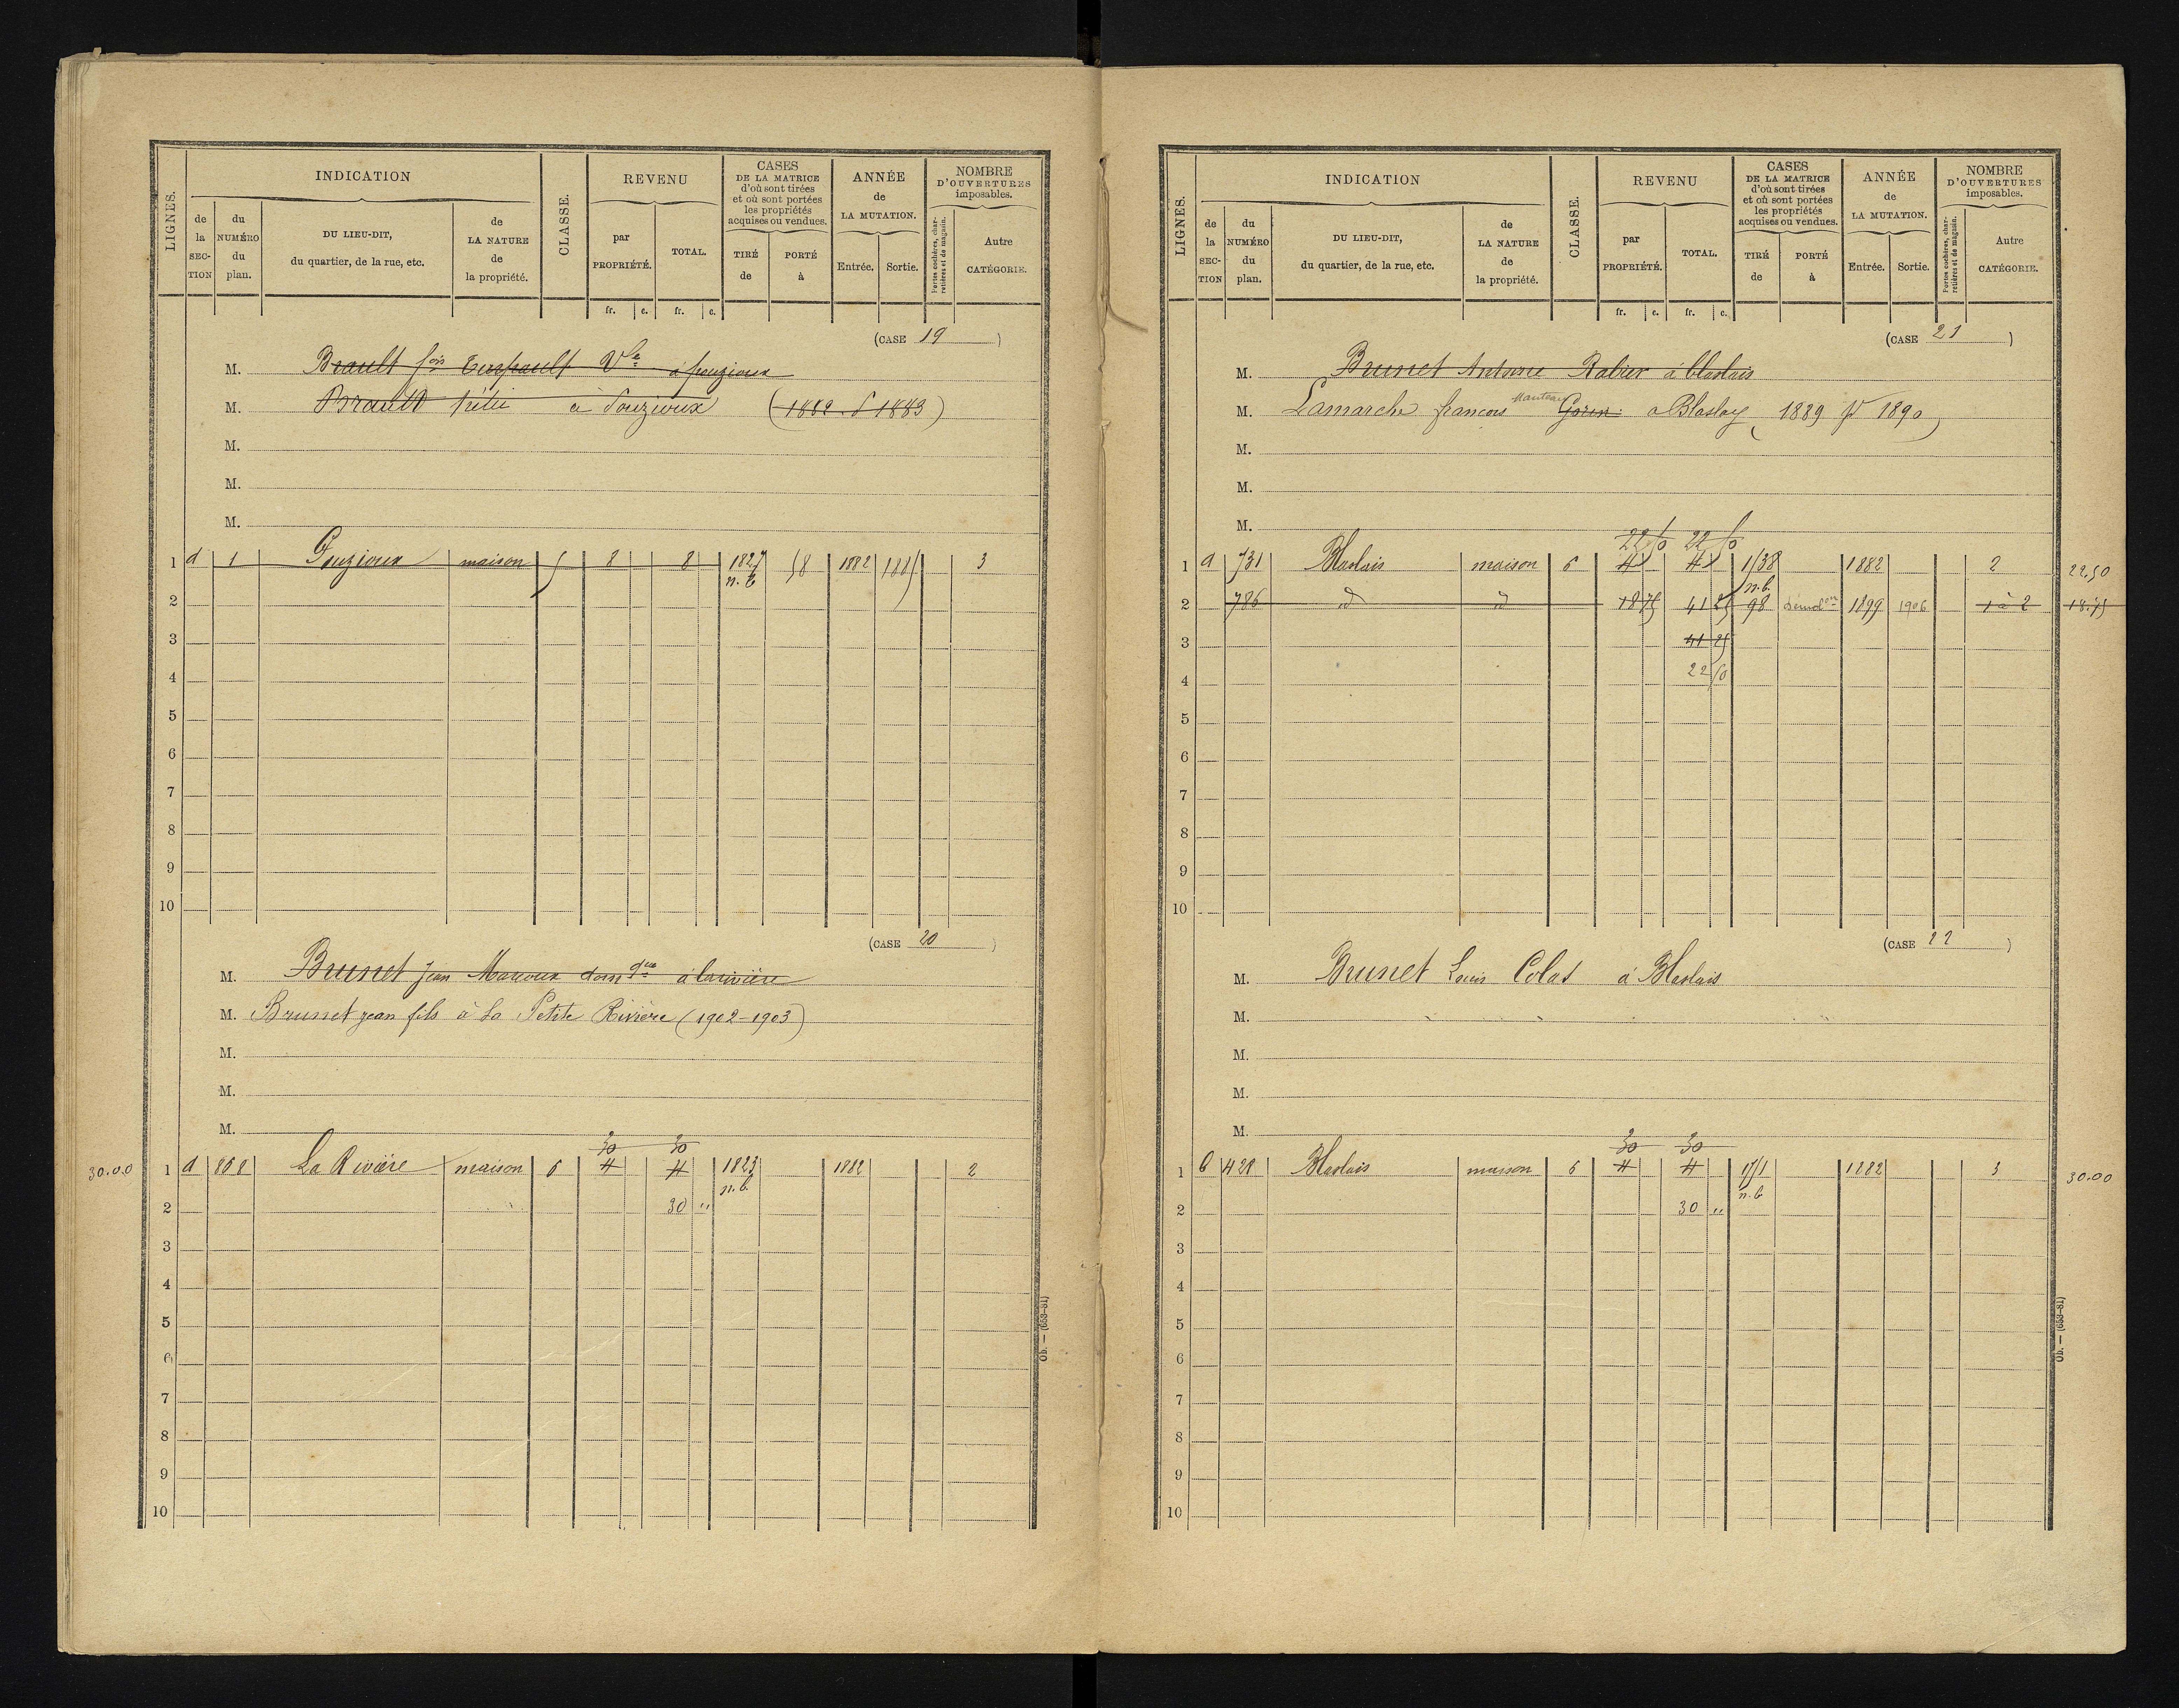 LIGNES.
INDICATION
de la SECTION
du NUMÉRO du plan.
DU LIEU-DIT, du quartier, de la rue, etc.
de LA NATURE de la propriété.
CLASSE.
REVENU
par PROPRIÉTÉ.
TOTAL.
CASES DE LA MATRICE d'où sont tirées et où sont portées les propriétés acquises ou vendues.
TIRÉ de
PORTÉ à
ANNÉE de LA MUTATION.
Entrée.
Sortie.
NOMBRE D'OUVERTURES imposables.
Portes cochères, charretières et de magasin.
Autre CATÉGORIE.
fr. c. fr. c.
(CASE 19)
M. Brault fois Vve à fouzioux
M. Brault à Fouzioux (1882 1883)
M.
M.
M.
1 d 1 Fouzioux maison 5 8 8 1827 58 1882 1885 3
n.b
2
3
4
5
6
7
8
9
10
(CASE 20)
M. Brunet Jean à larivière
M. Brunet jean fils à La Petite Rivière (1902-1903)
M.
M.
M.
30 30
30.00 1 d 868 La Rivière maison 6 4 4 1823 1882 2
n.b.
2 30 "
3
4
5
6
7
8
9
10
Ob. — (653-81)
LIGNES.
INDICATION
de la SECTION
du NUMÉRO du plan.
DU LIEU-DIT, du quartier, de la rue, etc.
de LA NATURE de la propriété.
CLASSE.
REVENU
par PROPRIÉTÉ.
TOTAL.
CASES DE LA MATRICE d'où sont tirées et où sont portées les propriétés acquises ou vendues.
TIRÉ de
PORTÉ à
ANNÉE de LA MUTATION.
Entrée.
Sortie.
NOMBRE D'OUVERTURES imposables.
Portes cochères, charretières et de magasin.
Autre CATÉGORIE.
fr. c. fr. c.
(CASE 21)
M. Brunet Antoine Rabier à blaslais
M. Lamarche francois Manteau à Blaslay (1889 pr 1890)
M.
M.
M.
22 50 22 50
1 d 731 Blaslais maison 6 1/38 1882 2 22.50
n.b.
2 786 d d 18 75 41 25 98 démolon 1899 1906 1 à 2 18.75
3 41 25
4 22 50
5
6
7
8
9
10
(CASE 22)
M. Brunet Louis Colas à Blaslais
M.
M.
M.
M.
30 30
1 b 428 Blaslais maison 6 4 4 17/1 1882 3 30.00
n.b
2 30 "
3
4
5
6
7
8
9
10
Ob. — (653-81)